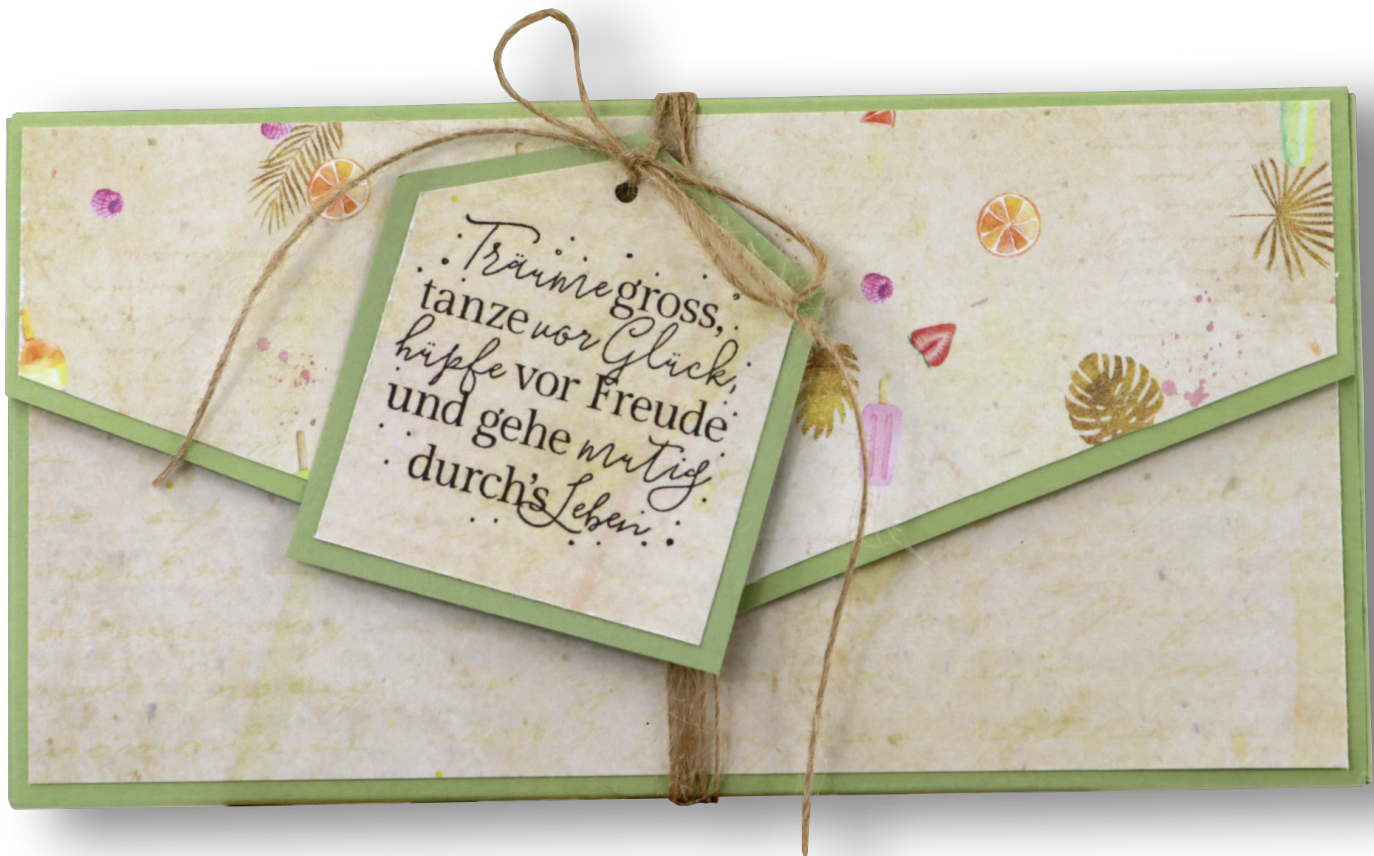 Träume gross,
tanze vor Glück,
hüpfe vor Freude
und gehe mutig
durch's Leben